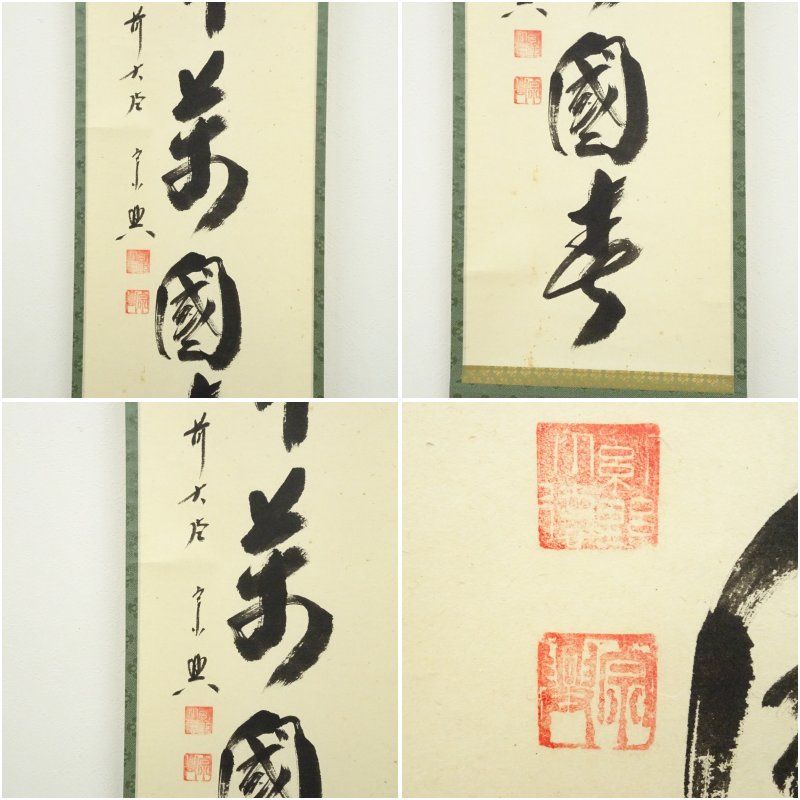 萬國
前大徳 宗興
國春
萬國
前大徳 宗興
宗興